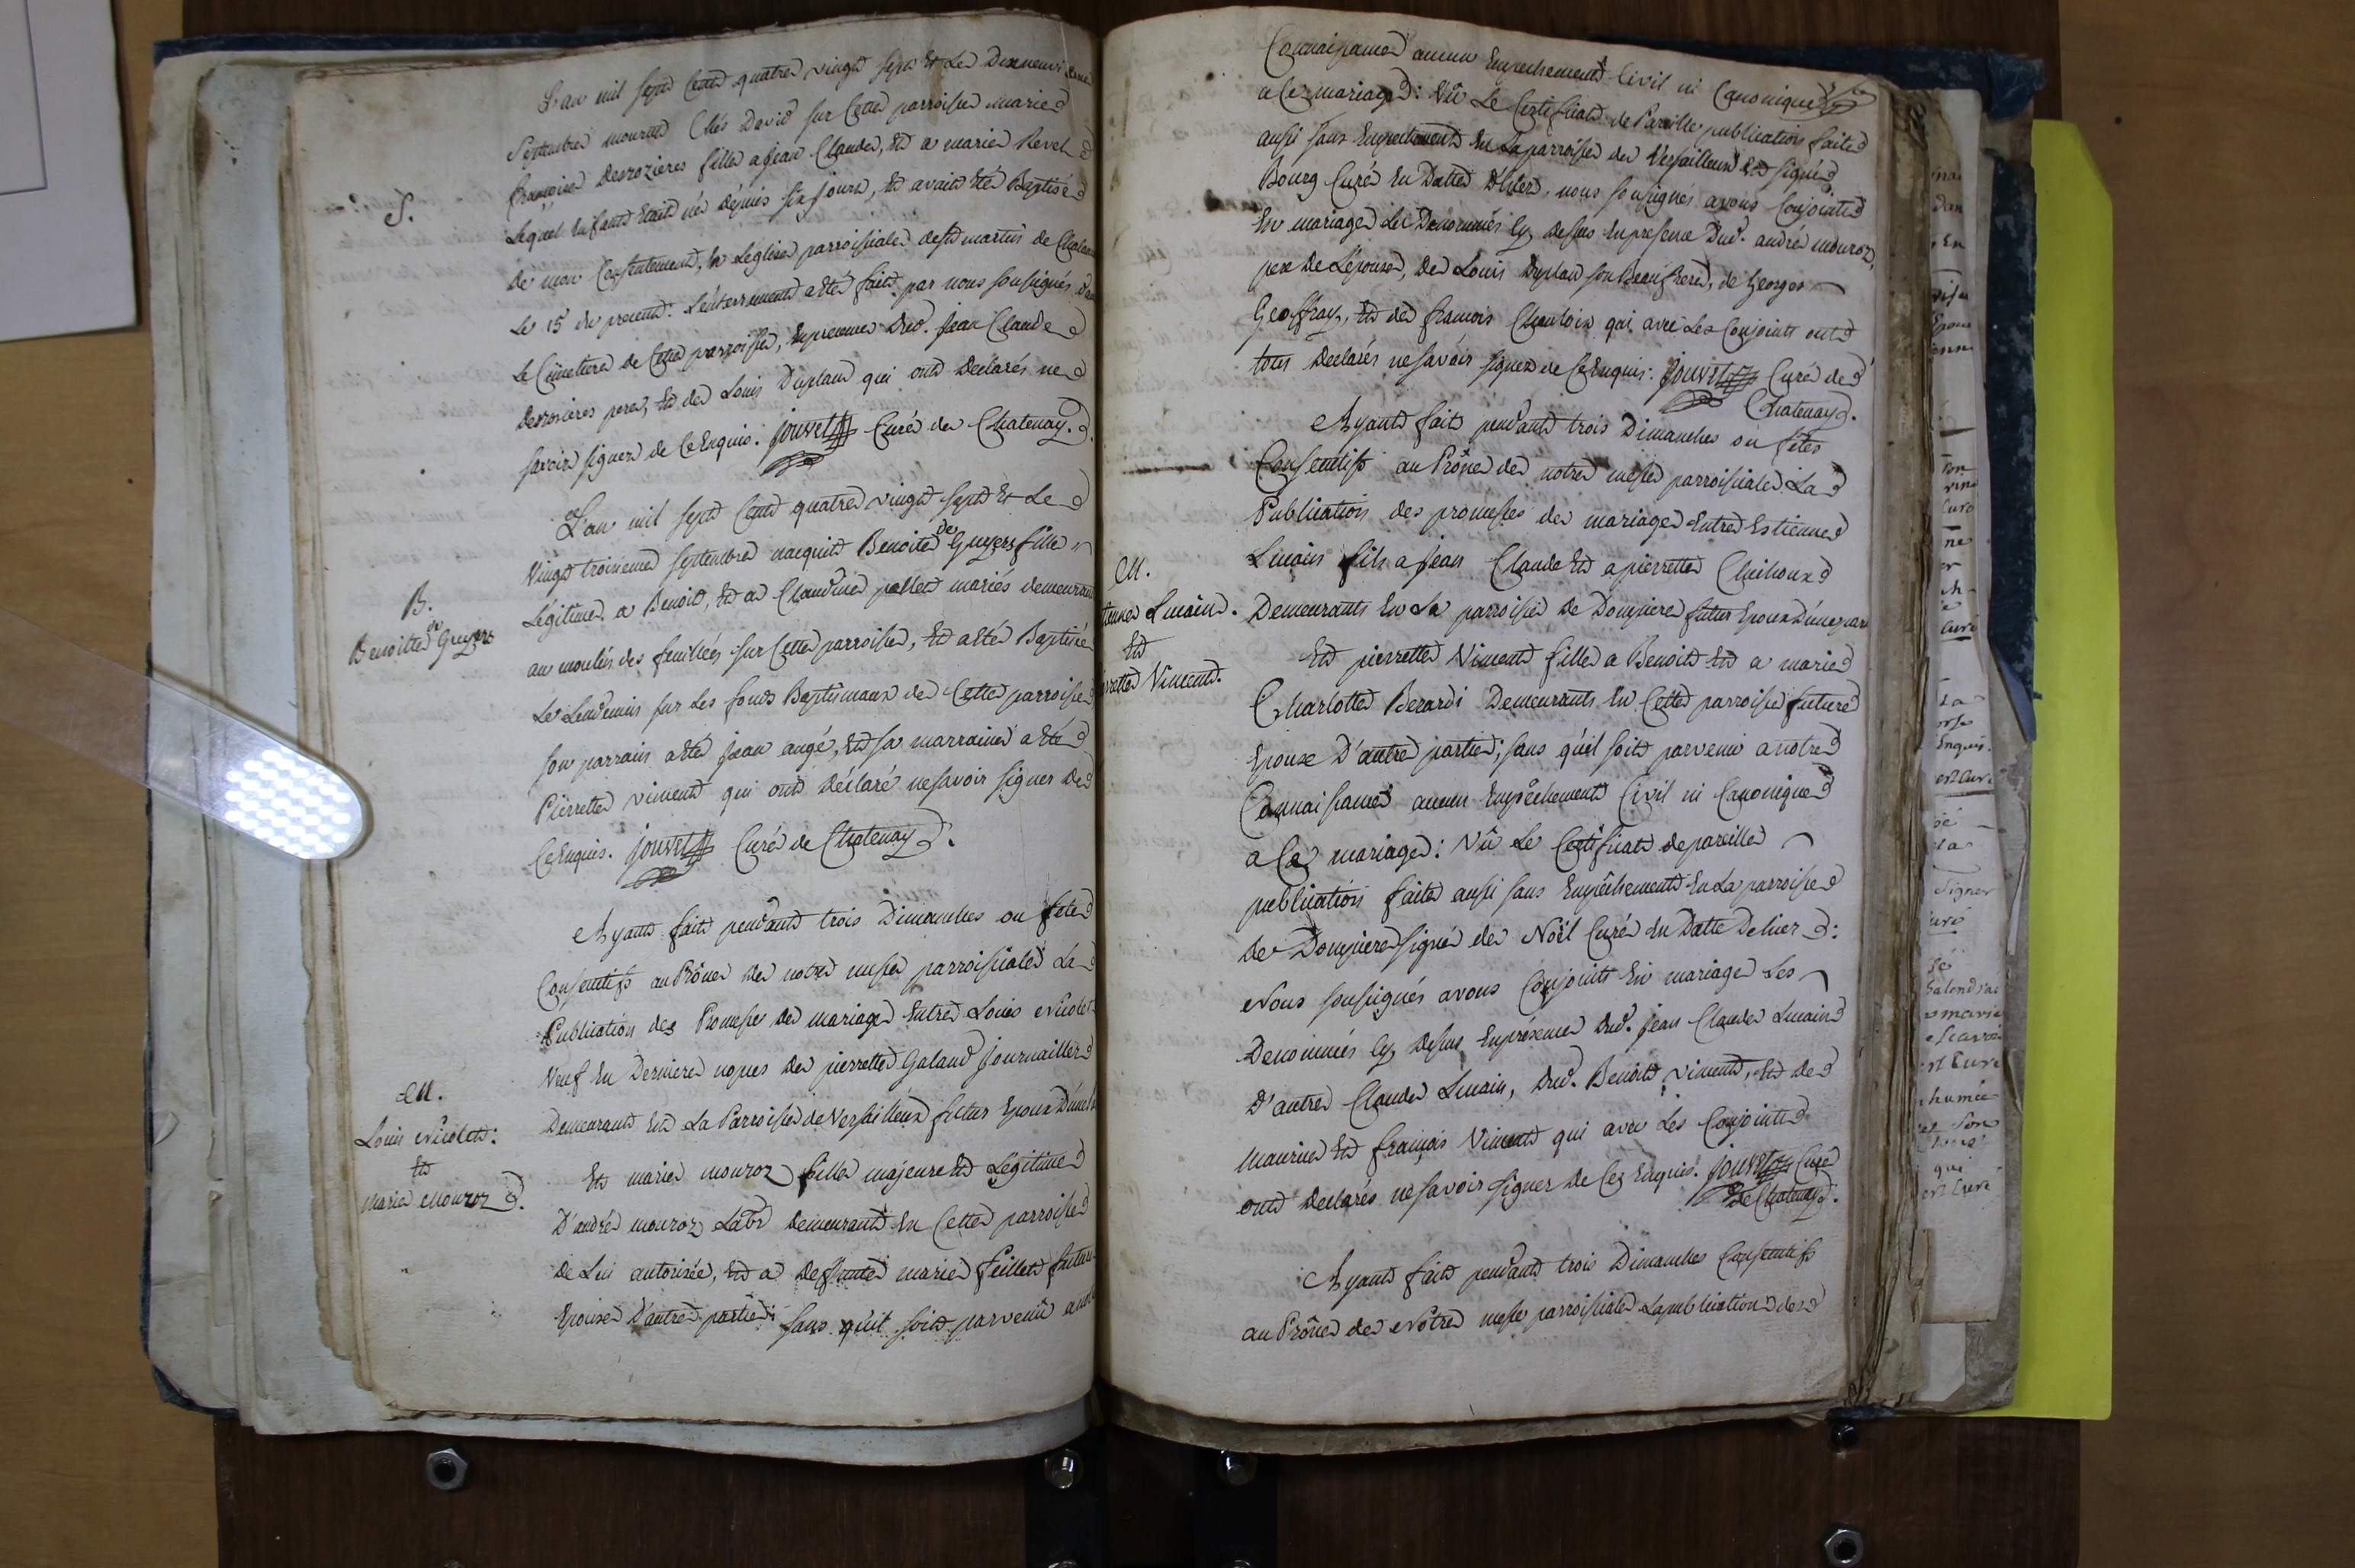 L'an mil sept Cent quatre vingt sept Et Le Dixneuvieme
Septembre mourut Chés David sur Cette parroisse marie
françoise Desrozieres fille a jean Claude, Et a marie Revel
Lequel Enfant Etait né dépuis six jours, Et avait Eté Baptisé
S.
de mon Consentement, En Leglise parroissiale de st martin de
Le 15 du present. L'enterrement a Eté fait par nous soussignés dans
Le Cimetiere de Cette parroisse, En presence dud. jean Claude
Desrosieres pere, Et de Louis Duplan qui ont Declarés ne
savoir signer de Ce Enquis. jouvet Curé de Chatenay.
L'an mil sept Cent quatre vingt sept Et Le
Vingt troisieme septembre nacquit Benoite de Gruyers fille
Légitime a Benoit, Et a Claudine pellet mariés demeurant
B.
Benoitte de Gruyers
au moulin des feuillées sur Cette parroisse, Et a Eté Baptisée
Le Lendemain sur Les fonds Baptismaux de Cette parroisse
son parrain a Eté jean augé, Et sa marraine a Eté
Pierrette viment qui ont Déclaré ne savoir signer de
Ce Enquis. jouvet Curé de Chatenay.
Ayant fait pendant trois Dimanches ou fete
Consecutifs au Prône de notre messe parroissiale La
Publication des Promesses de mariage Entre Louis Nicolet
Veuf En Derniere nopces de pierrette Galand journailler
M.
Louis Nicolet:
Et
Marie Mouroz.
Demeurant En La Parroisse de Versailleux futur Epoux D'une
Et marie mouroz fille majeure Et Légitime
D'andré mouroz Labr demeurant En Cette parroisse
de Lui autorisée, Et a deffunte marie feillet future
Epouse D'autre partie: sans qu'il soit parvenû a
Connaissance aucun Empechement Civil ni Canonique
a Ce mariage: Vû Le Certificat de Pareille publication faite
aussi sans Empechement En La parroisse de Versailleux Et signé
Bourg Curé En Datte D'hier, nous soussignés avons Conjoint
En mariage Les Denommés Cy dessus En presence Dud. andré mouroz,
pere De Lépouse, de Louis Duplan son Beau frere, de Georges
Geoffray, Et de francois qui avec Les Conjoints ont
tous Declarés ne savoir signer de Ce Enquis. jouvet Curé de
Chatenay.
Ayant fait pendant trois Dimanches ou fetes
Consecutifs au Prône de notre messe parroissiale La
Publication des promesses de mariage Entre Estienne
Limain fils a jean Claude Et a pierrette
M.
Limain.
Et
Viment.
Demeurants En La parroisse de Dompierre futur Epoux D'une part
Et pierrette Viment fille a Benoit Et a marie
Charlotte Berardi Demeurants En Cette parroisse future
Epouse D'autre partie; sans qu'il soit parvenu a notre
Connaissance aucun Empêchement Civil ni Canonique
a Ce mariage: Vû Le Certificat de pareille
publication faite aussi sans Empêchement En La parroisse
de Dompierre signé de Noël Curé En Datte De hier:
Nous soussignés avons Conjoints En mariage Les
Denommés Cy dessus En présence dud. jean Claude Limain
D'autre Claude Limain, dud. Benoit viment, Et de
Maurice Et françois Viment qui avec Les Conjoints
ont declarés ne savoir signer de Ce Enquis. jouvet Curé
de Chatenay.
Ayant fait pendant trois Dimanches Consecutifs
au Prône de Notre messe parroissiale La publication des